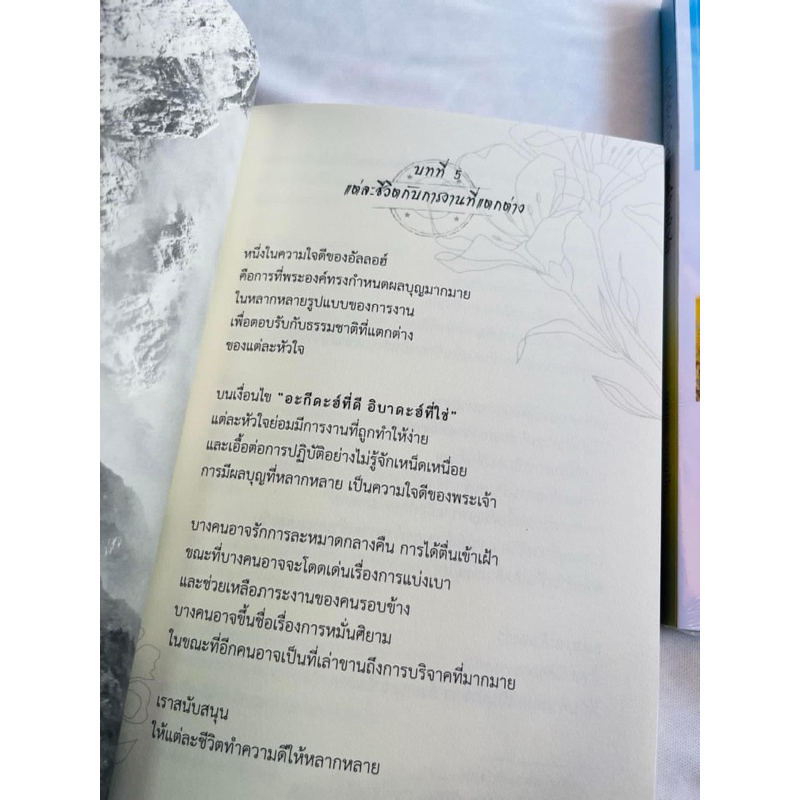 บทที่ 5
แต่ละชีวิตกับการงานที่แตกต่าง
หนึ่งในความใจดีของอัลลอฮ์
คือการที่พระองค์ทรงกำหนดผลบุญมากมาย
ในหลากหลายรูปแบบของการงาน
เพื่อตอบรับกับธรรมชาติที่แตกต่าง
ของแต่ละหัวใจ
บนเงื่อนไข "อะกีดะฮ์ที่ดี อิบาดะฮ์ที่ใช่"
แต่ละหัวใจย่อมมีการงานที่ถูกทำให้ง่าย
และเอื้อต่อการปฏิบัติอย่างไม่รู้จักเหน็ดเหนื่อย
การมีผลบุญที่หลากหลาย เป็นความใจดีของพระเจ้า
บางคนอาจรักการละหมาดกลางคืน การได้ตื่นเข้าเฝ้า
ขณะที่บางคนอาจจะโดดเด่นเรื่องการแบ่งเบา
และช่วยเหลือภาระงานของคนรอบข้าง
บางคนอาจขึ้นชื่อเรื่องการหมั่นศิยาม
ในขณะที่อีกคนอาจเป็นที่เล่าขานถึงการบริจาคที่มากมาย
เราสนับสนุน
ให้แต่ละชีวิตทำความดีให้หลากหลาย